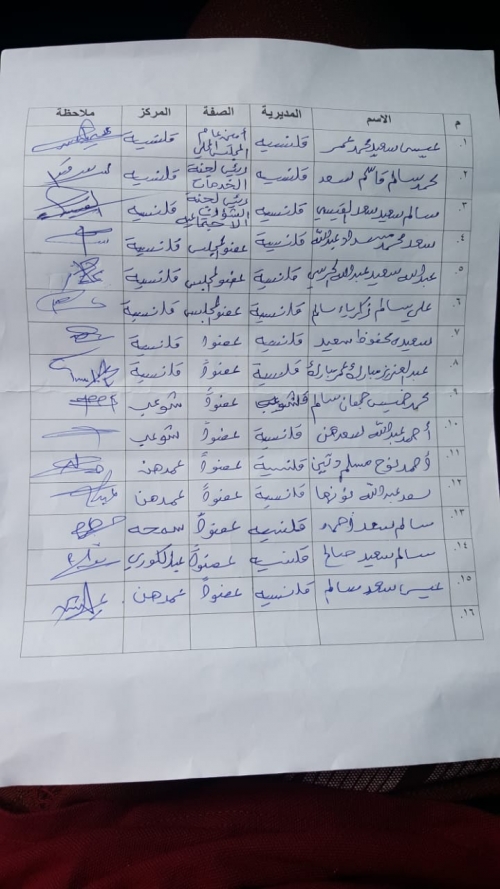 م الاسم المديرية الصفة المركز ملاحظة
١. عيسى سعيد محمد عمر قلنسيه أمين عام المجلس المحلي قلنسيه
٢. محمد سالم قاسم سعد قلنسيه رئيس لجنة الخدمات قلنسيه
٣. سالم سعيد سعد قلنسيه رئيس لجنة الشؤون الاجتماعيه قلنسيه
٤. سعد محمد عبدالله قلنسية عضو المجلس قلنسية
٥. عبدالله سعيد عبدالله قلنسية عضو المجلس قلنسية
٦. علي سالم زكرياء سالم قلنسية عضو المجلس قلنسية
٧. سعيد محفوظ سعيد قلنسيه عضواً قلنسية
٨. عبدالعزيز مبارك عمر مبارك قلنسية عضواً قلنسية
٩. محمد خميس جمعان سالم عضواً شوعب
١٠. أحمد عبدالله سعدهن قلنسية عضواً شوعب
١١. أحمد نوح مسلم قلنسية عضواً عمدهن
١٢. سعد عبدالله قلنسية عضواً عمدهن
١٣. سالم سعد أحمد قلنسيه عضواً سمحه
١٤. سالم سعيد صالح قلنسيه عضواً عبدالكوري
١٥. عيسى سعد سالم قلنسيه عضواً عمدهن
١٦.